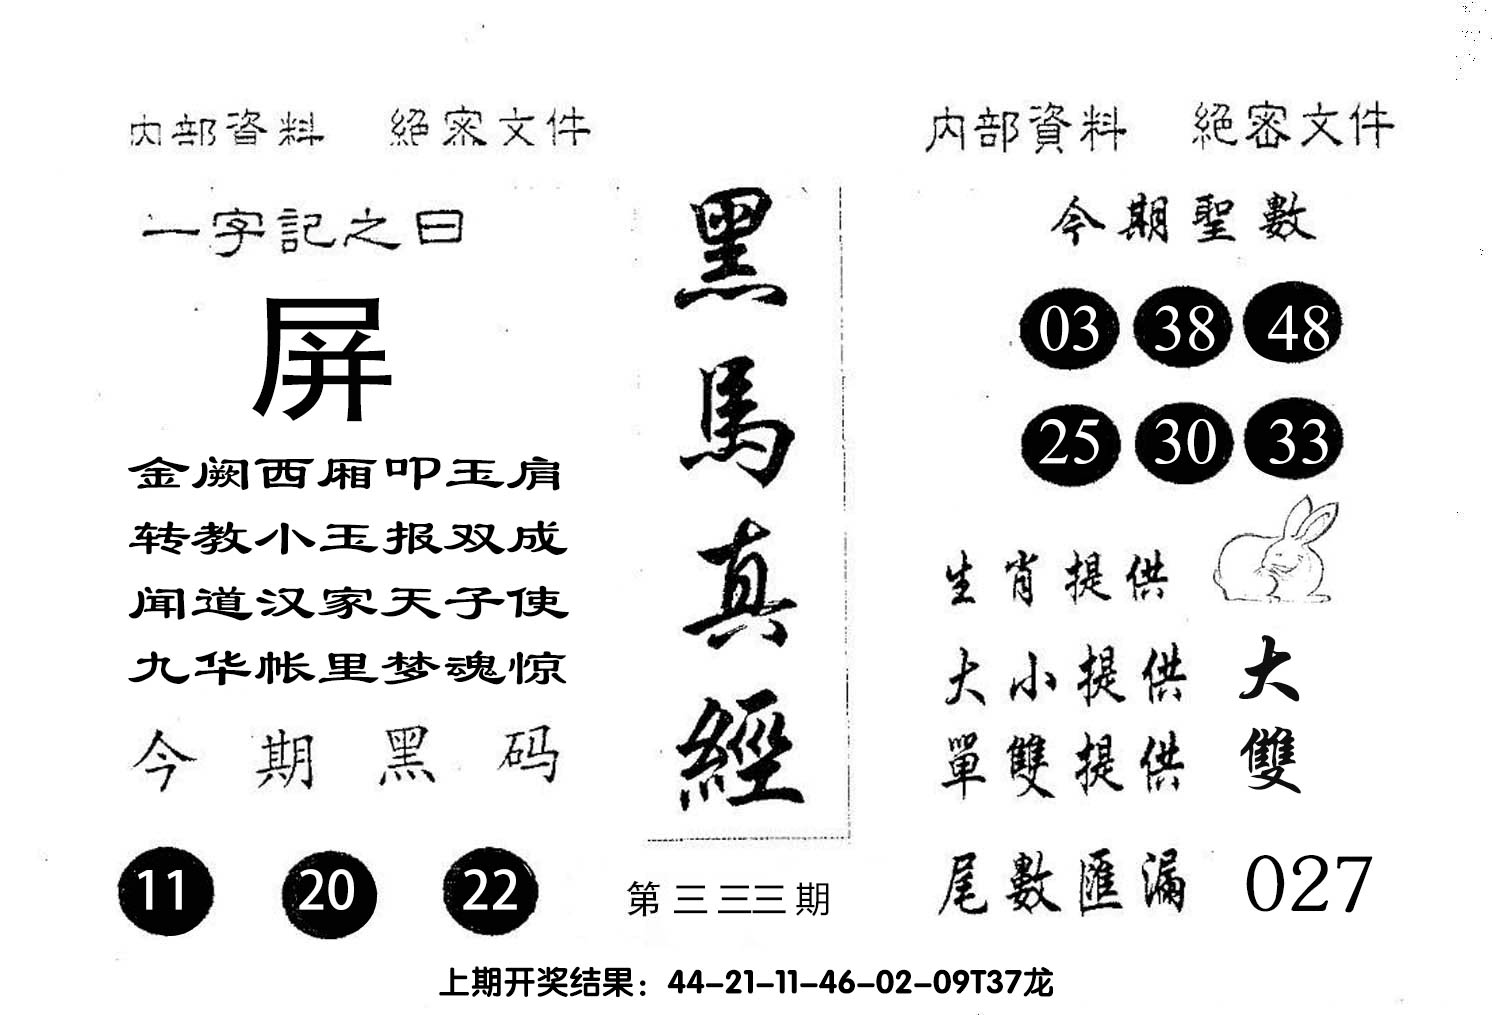 内部資料 絕密文件
一字記之曰
屏
金阙西厢叩玉肩
转教小玉报双成
闻道汉家天子使
九华帐里梦魂惊
今期黑码
11 20 22
黑馬真經
第三三三期
内部資料 絕密文件
今期聖數
03 38 48
25 30 33
生肖提供
大小提供 大
單雙提供 雙
尾數匯漏 027
上期开奖结果：44-21-11-46-02-09T37龙